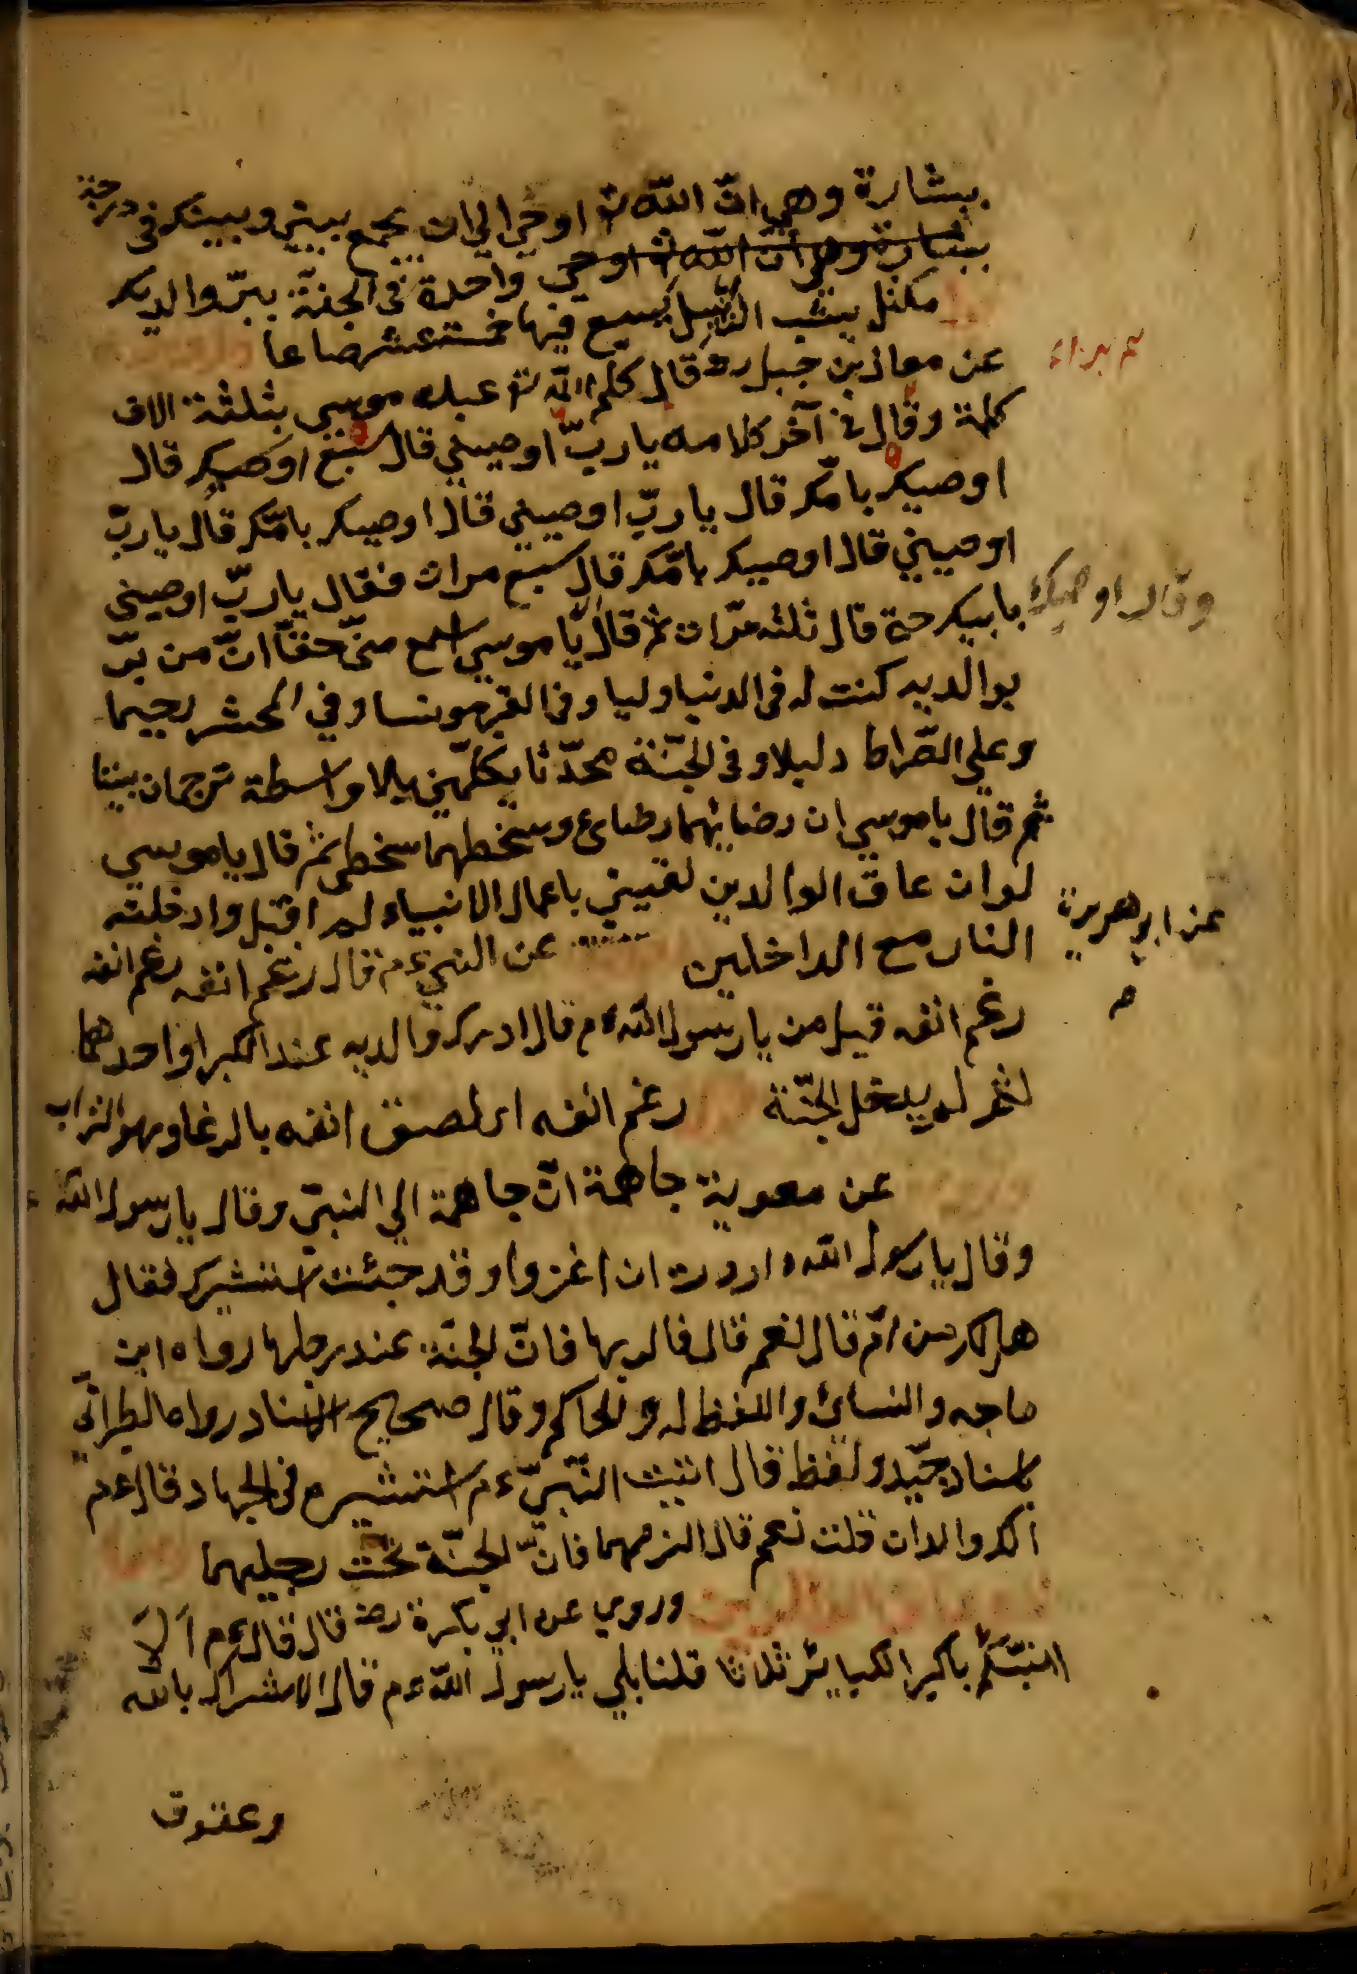 ببشارة وهي انّ الله تع اوحي الي ان يجمع بيني وبينك في درجة
ببشارة وهي ان الله تع اوحي واحدة في الجنّة ببرّ والديك
مكتل يشبه الزّبيل يسع فيها خمسة عشر صاعا
عن معاذ بن جبل رضه قال كلم الله تع عبده موسي بثلثة الاف
كلمة وقال في آخر كلامه يا ربّ اوصيني قال سبع اوصيك قال
اوصيك بامّك قال يا ربّ اوصيني قال اوصيك بامّك قال يا ربّ
اوصيني قال اوصيك بامّك قال سبع مرات فقال يا ربّ اوصيني
وقال اوصيك
بابيك حتي قال ثلثه مرّات ثم قال يا موسي اسمع منّي حقّا انّ من برّ
بوالديه كنت له في الدنيا وليا وفي القبر مونسا وفي المحشر رحيما
وعلي الصّراط دليلا وفي الجنّة محدّثا يكلّمني بلا واسطة ترجمان بيننا
ثم قال يا موسي ان رضايهما رضائ وسخطهما سخطي ثم قال يا موسي
لو ان عاقّ الوالدين لقيني باعمال الانبياء لم اقبل وادخلته
النار مع الداخلين عن النبيّ ءم قال رغم انفه رغم انفه
عن ابي هريرة
رغم انفه قيل من يا رسول الله ءم قال ادرك والديه عند الكبر او احدهما
ثم لم يدخل الجنّة رغم انفه اي لصق انفه بالرغام وهو التراب
عن معوية جاهمة انّ جاهمة الي النبيّ وقال يا رسول الله
وقال يا رسول الله اردت ان اغزوا وقد جئت استشيرك فقال
هل لك من امّ قال نعم قال فالزمها فانّ الجنّة عند رجلها رواه ابن
ماجه والنسائ واللفظ له والحاكم وقال صحيح الاسناد رواه الطبرانيّ
باسناد جيّد ولفظ قال اتيت النّبيّ ءم استشيره في الجهاد قال ءم
الك والدان قلت نعم قال الزمهما فانّ الجنّة تحت رجليهما
وروي عن ابي بكرة رضه قال قال ءم اَلاَ
انبّئكم باكبر الكباير ثلاثا قلنا بلي يا رسول الله ءم قال الاشراك بالله
وعقوق